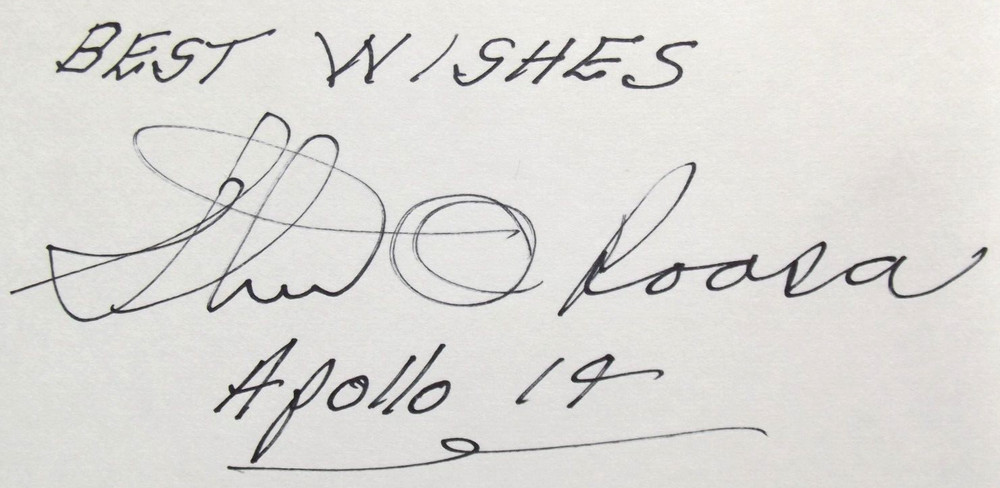 BEST WISHES
Stuart Roosa
Apollo 14